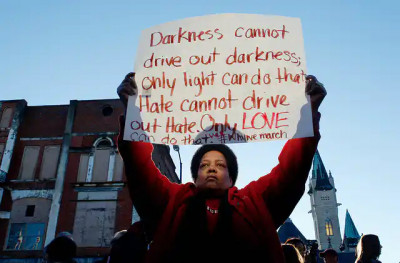 Darkness cannot
drive out darkness;
only light can do that
Hate cannot drive
out Hate. Only LOVE
can do that
march